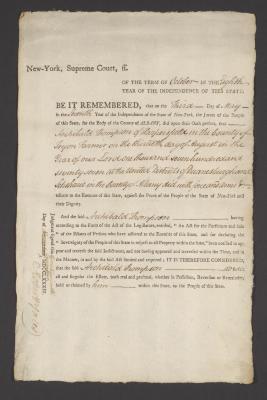 New-York, Supreme Court, ss.
OF THE TERM OF October IN THE Eighth
YEAR OF THE INDEPENDENCE OF THIS STATE:
BE IT REMEMBERED, that on the Third Day of May
in the Year of the Independence of the State of New-York, the Jurors of the People
of this State, for the Body of the County of ALBANY, did upon their Oath present, that
Archibald Thompson of in the County of
Tryon Farmer on the day of August in the
Year of our Lord one thousand seven hundred and
seventy seven at the United Districts of Duanesburgh and
Schohary in the County of Albany did, with force and arms &c
adhere to the Enemies of this State, against the Peace of the People of the State of New-York and
their Dignity.
And the said Archibald Thompson having
according to the Form of the Act of the Legislature, entitled, "An Act for the Forfeiture and Sale
"of the Estates of Persons who have adhered to the Enemies of this State, and for declaring the
"Sovereignty of the People of this State in respect to all Property within the same," been notified to ap-
pear and traverse the said Indictment, and not having appeared and traversed within the Time, and in
the Manner, in and by the said Act limited and required; IT IS THEREFORE CONSIDERED,
that the said Archibald Thompson do forfeit
all and singular the Estate, both real and personal, whether in Possession, Reversion or Remainder,
held or claimed by him within this State, to the People of this State.
Judgment signed this
Day of MDCCLXXXIII